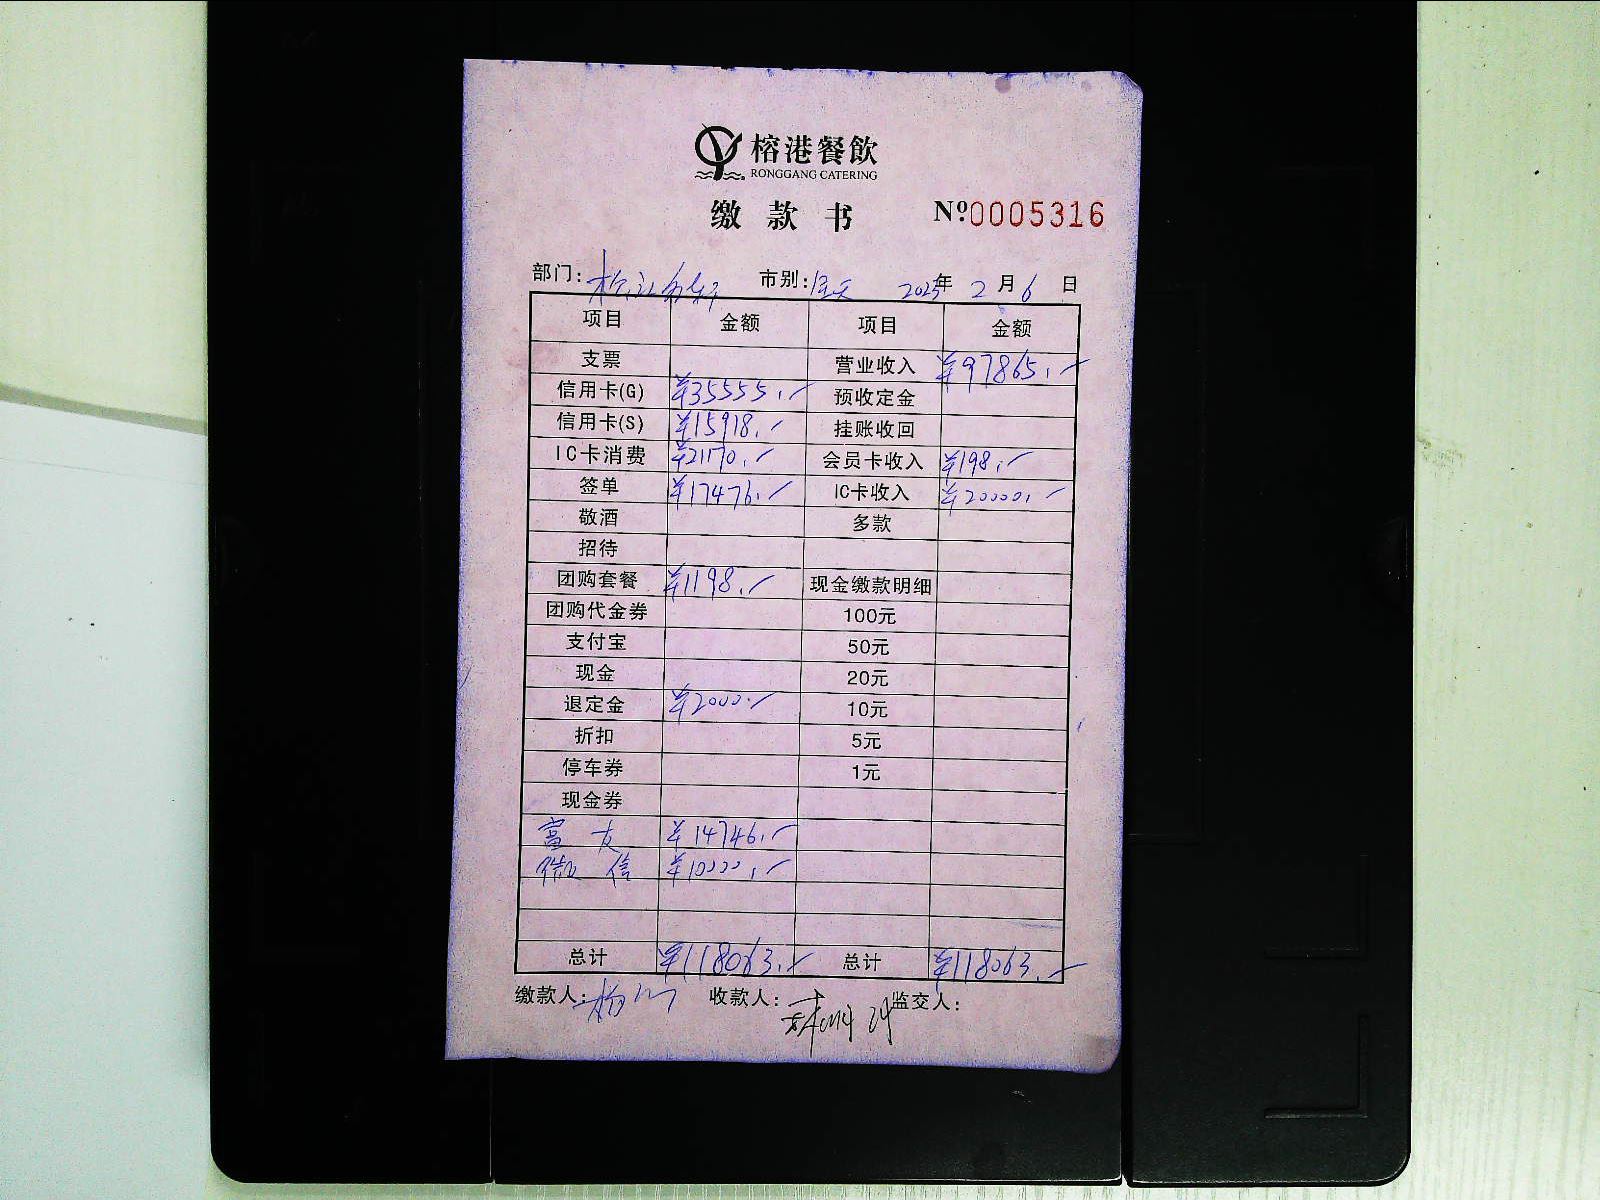 榕港餐飲
RONGGANG CATERING
缴款书 Nº0005316
部门: 市别:全天 2025年2月6日
项目 金额 项目 金额
支票 营业收入 ¥97865.-
信用卡(G) ¥35555.- 预收定金
信用卡(S) ¥15918.- 挂账收回
IC卡消费 ¥21170.- 会员卡收入 ¥198.-
签单 ¥17476.- IC卡收入 ¥20000.-
敬酒 多款
招待
团购套餐 ¥1198.- 现金缴款明细
团购代金券 100元
支付宝 50元
现金 20元
退定金 ¥2000.- 10元
折扣 5元
停车券 1元
现金券
富友 ¥14746.-
微信 ¥10000.-
总计 ¥118063.- 总计 ¥118063.-
缴款人: 收款人: 监交人: